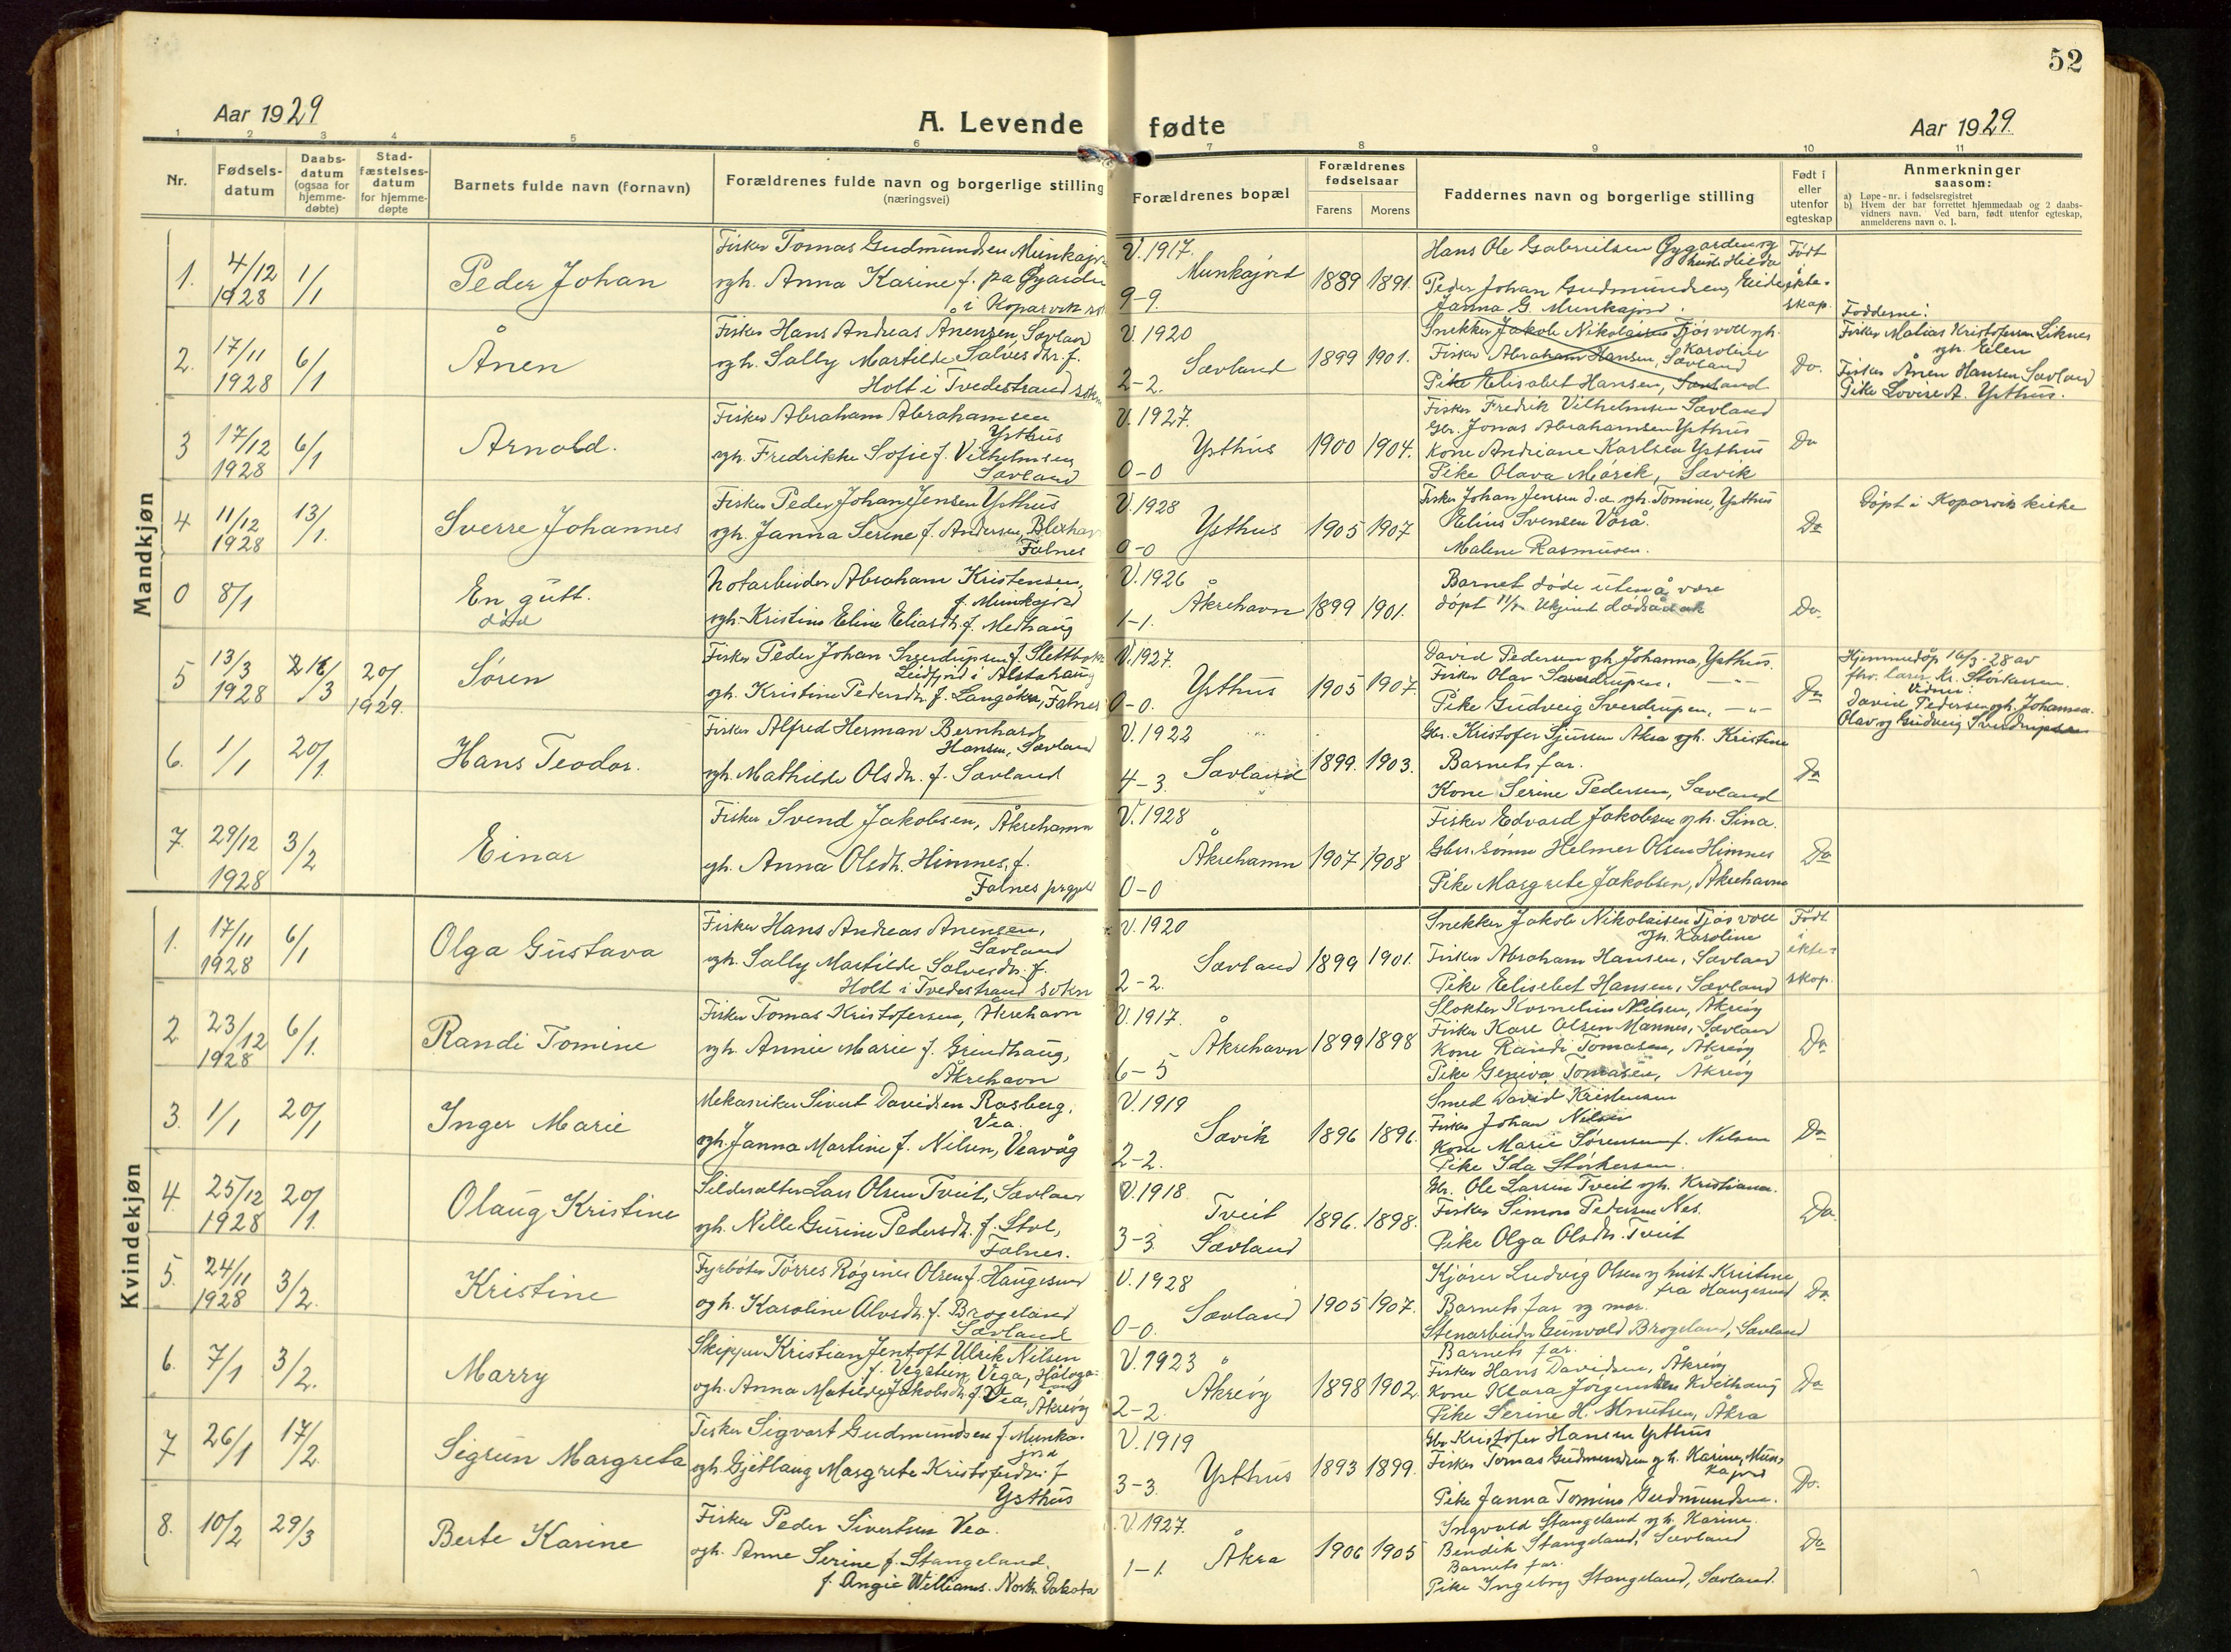 52
Aar 1929
A. Levende fødte
Aar 1929.
1 2 3 4 5 6 7 8 9 10 11
Nr.
Fødsels-
datum
Daabs-
datum
(ogsaa for
hjemme-
døbte)
Stad-
fæstelses-
datum
for hjemme-
døpte
Barnets fulde navn (fornavn)
Forældrenes fulde navn og borgerlige stilling
(næringsvei)
Forældrenes bopæl
Forældrenes
fødselsaar
Farens Morens
Faddernes navn og borgerlige stilling
Født i
eller
utenfor
egteskap
Anmerkninger
saasom:
a) Løpe-nr. i fødselsregistret
b) Hvem der har forrettet hjemmedaab og 2 daabs-
vidners navn. Ved barn, født utenfor egteskap,
anmelderens navn o. l.
Mandkjøn
1. 4/12 1928 1/1
Peder Johan
Fisker Tomas Gudmundsen Munkajor
ogh. Anna Karine f. på Øygarden
i Koparvik
V. 1917.
Munkajord
9-9.
1889 1891.
Hans Ole Gabrielsen Øygarden og
hust. Hilda
Peder Johan Gudmundsen, Eide
Janna G. Munkajord.
Født
i ekte-
skap.
2. 17/11 1928 6/1
Ånen
Fisker Hans Andreas Anensen, Sævland
ogh. Sally Martilde Salvesdtr. f.
Holt i Tvedestrand sokn
V. 1920
Sævland
2-2.
1899 1901.
Snekker Jakob Nikolaisen Tjøsvoll ogh.
Karoline
Fisker Abraham Hansen, Sævland
Pike Elisabet Hansen, Sævland
Do.
Fodderne:
Fisker Matias Kristofersen Liknes
ogh. Elen
Fisker Ånen Hansen Sævland
Pike Lovise A. Ysthus.
3 17/12 1928 6/1
Arnold.
Fisker Abraham Abrahamsen
Ysthus
ogh. Fredrikke Sofie f. Vilhelmsen
Sævland
V. 1927.
Ysthus
0-0
1900 1904.
Fisker Fredrik Vilhelmsen Sævland
Gbr. Jonas Abrahamsen Ysthus
Kone Andriane Karlsen Ysthus
Pike Olava Mørek, Sævik
Do
4 11/12 1928 13/1.
Sverre Johannes
Fisker Peder Johan Jensen Ysthus
ogh. Janna Serine f. Andersen,
Falnes
V. 1928
Ysthus
0-0
1905 1907
Fisker Johan Jensen d.e. ogh. Tomine, Ysthus
Elius Svensen Vårå.
Malene Rasmussen.
Do
Døpt i Koparvik kirke
0 8/1
En gutt.
død
Notarbeider Abraham Kristensen,
f. Munkajord
ogh. Kristine Eline Eliasdtr. f. Medhaug
V. 1926
Åkrehavn
1-1.
1899 1901.
Barnet døde uten å være
døpt
Do.
5 13/3 1928 /3 20/1 1929.
Søren
Fisker Peder Johan Sverdrupsen f.
Leidfjord i Alstahaug
ogh. Kristine Pedersdtr. f. Langåker, Falnes
V. 1927.
Ysthus
0-0.
1905 1907.
David Pedersen ogh. Johanna, Ysthus.
Fisker Olav Sverdrupsen, —"—
Pike Gudveig Sverdrupsen, —"—
Do
Hjemmedøp 16/3-28 av
fhv. lærer Kr. Størkersen.
Vidner:
David Pedersen ogh. Johanna.
Olav og Gudveig Sverdrupsen
6. 1/1 20/1.
Hans Teodor.
Fisker Alfred Herman Bernhard
Hansen, Sævland
ogh. Mathilde Olsdtr. f. Sævland
V. 1922
Sævland
4-3.
1899. 1903.
Gbr. Kristofer Sjursen Åkra ogh. Kristine
Barnets far.
Kone Serine Pedersen, Sævland
Do
7. 29/12 1928 3/2
Einar
Fisker Svend Jakobsen, Åkrehamn
ogh. Anna Olsdtr. Himnes, f.
Falnes prgjeld
V. 1928
Åkrehamn
0-0
1907 1908
Fisker Edvard Jakobsen ogh. Sina.
Gbrs. sønn Helmer Olsen Himnes
Pike Margrete Jakobsen, Åkrehavn
Do
Kvindekjøn
1. 17/11 1928 6/1
Olga Gustava
Fisker Hans Andreas Anensen,
Sævland
ogh. Sally Martilde Salvesdtr. f.
Holt i Tvedestrand sokn
V. 1920
Sævland
2-2.
1899 1901.
Snekker Jakob Nikolaisen Tjøsvoll
ogh. Karoline
Fisker Abraham Hansen, Sævland
Pike Elisabet Hansen, Sævland
Født
i ekte-
skap.
2 23/12 1928 6/1.
Randi Tomine
Fisker Tomas Kristofersen, Åkrehavn
ogh. Annie Marie f. Grindhaug,
Åkrehavn
V. 1917.
Åkrehavn
6-5
1899 1898
Slakter Kornelius Nilsen, Åkreøy
Fisker Karl Olsen Mannes, Sævland
Kone Randi Tomasen, Åkreøy
Pike Geniva Tomasen, Åkreøy
Do
3. 1/1 20/1
Inger Marie
Mekaniker Sivert Davidsen Rasberg,
Vea.
ogh. Janna Martine f. Nilsen, Veavåg
V. 1919
Sævik
2-2.
1896 1896.
Smed David Kristensen
Fisker Johan Nilsen
Kone Marie Sørensen f. Nilsen
Pike Ida Størkersen.
Do
4. 25/12 1928 20/1.
Olaug Kristine
Sildesalter Lars Olsen Tveit, Sævland
ogh. Nille Gurine Pedersdtr. f. Stol,
Falnes.
V. 1918.
Tveit
3-3. Sævland
1896. 1898.
Gbr. Ole Larsen Tveit ogh. Kristiana.
Fisker Simon Pedersen Nes.
Pike Olga Olsdtr. Tveit
Do.
5. 24/11 1928 3/2.
Kristine
Fyrbøter Tørres Røginer Olsen f. Haugesund
ogh. Karoline Alvsdtr. f. Brogeland
Sævland
V. 1928
Sævland
0-0.
1905 1907.
Kjører Ludvig Olsen og hust. Kristine
fra Haugesund
Barnets far og mor.
Stenarbeider Gunvald Brogeland, Sævland
Do.
6. 7/1 3/2.
Marry
Skipper Kristian Jentoft Ulrik Nilsen
f. Vegstein, Vega, Håloga-
ogh. Anna Matilde Jakobsdtr. f. Vea, Åkreøy
V. 1923
Åkreøy
2-2.
1898 1902
Barnets far.
Fisker Hans Davidsen, Åkreøy
Kone Klara Jørgensen Kvilhaug
Pike Serine H. Knutsen, Åkra
Do
7 26/1 17/2.
Sigrun Margreta
Fisker Sigvart Gudmundsen f. Munka-
jord
ogh. Gjetlaug Margrete Kristofersdtr. f
Ysthus
V. 1919
Ysthus
3-3.
1893 1899.
Gbr Kristofer Hansen Ysthus
Fisker Tomas Gudmundsen ogh. Karine, Mun-
kajord
Pike Janna Tomine Gudmundsen.
Do.
8. 10/2 29/3
Berte Karine
Fisker Peder Sivertsen Vea.
ogh. Anne Serine f. Stangeland.
f. Angie Williams. North Dakota
V. 1927.
Åkra
1-1.
1906 1905
Ingvald Stangeland ogh. Karine.
Bendik Stangeland, Sævland
Barnets far.
Pike Ingeborg Stangeland, Sævland.
Do